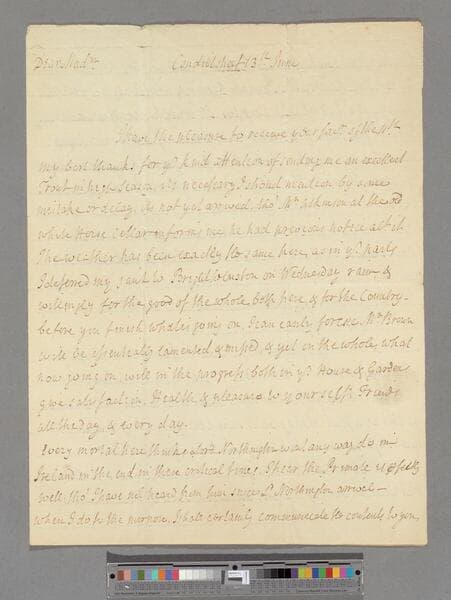 Dear Mad^m Conduit Street 13th June
I have the pleasure to receive your fav^r of the 11th
my best thanks for y^r kind attention of sending me an excellent
Trout in high Season, it's necessary I should mention by some
mistake or delay, its not yet arrived, tho' M^r Ashmson at the old
white Horse Cellar informs me he had previous notice of it
The weather has been exactly the same here, as in y^r parts
I deferred my jaunt to on Wednesday rain &
wile for the good of the whole both here & for the Country
before you finish what's going on, I can easily foresee M^r Brown
will be essentially lamented, & missed, & yet on the whole, what
now going on will in the progress both in y^r House & Garden
give satisfaction, Health & pleasure to your self & Friends
all the day, & every day.
Every mortal here thinks Lord Northington wont any way do in
Ireland in the end in these critical times, I hear the Primate is perfectly
well, tho' I have not heard from him since L^d Northington arrival
when I do to the purpose, I shall certainly communicate its contents to you,